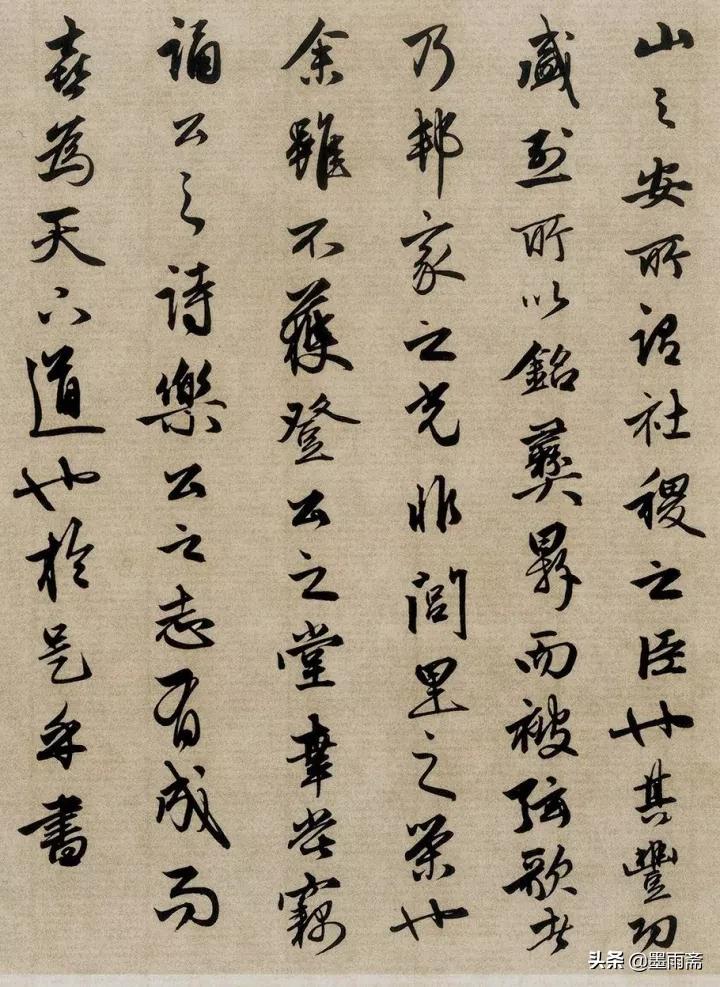 山之安所謂社稷之臣也其豐功
盛烈所以銘彝鼎而被弦歌者
乃邦家之光非閭里之榮也
余雖不獲登公之堂幸嘗竊
誦公之詩樂公之志有成而
喜為天下道也於是乎書
头条 @墨雨斋